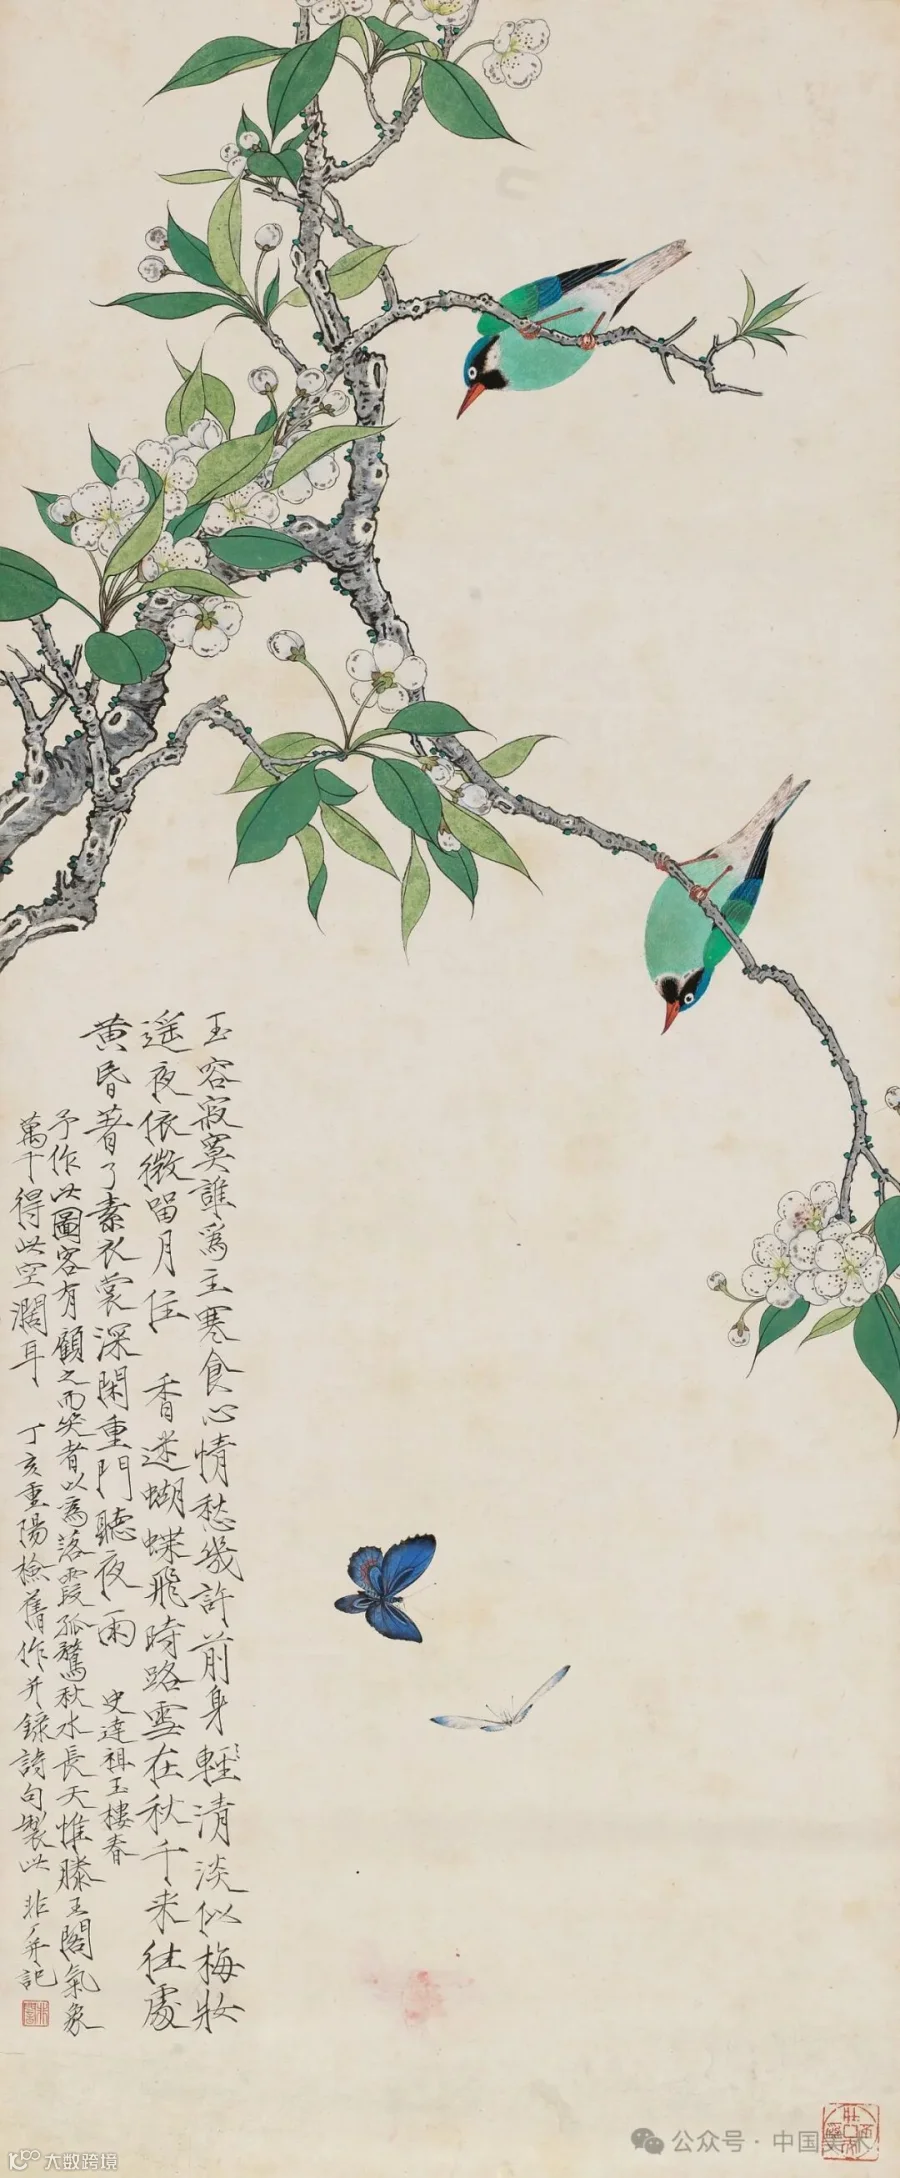 玉容寂寞誰為主寒食心情愁幾許前身輕清淡似梅妝
遥夜依微留月住 香迷蝴蝶飛時路雪在秋千来往處
黄昏著了素衣裳深閑重門聽夜雨 史達祖玉樓春
予作此圖客有顧之而笑者以為落霞孤鶩秋水長天惟滕王閣氣象
萬千得此空濶耳 丁亥重陽檢舊作并錄詩句製此 非厂并記
公众号·中国美术
大数跨境